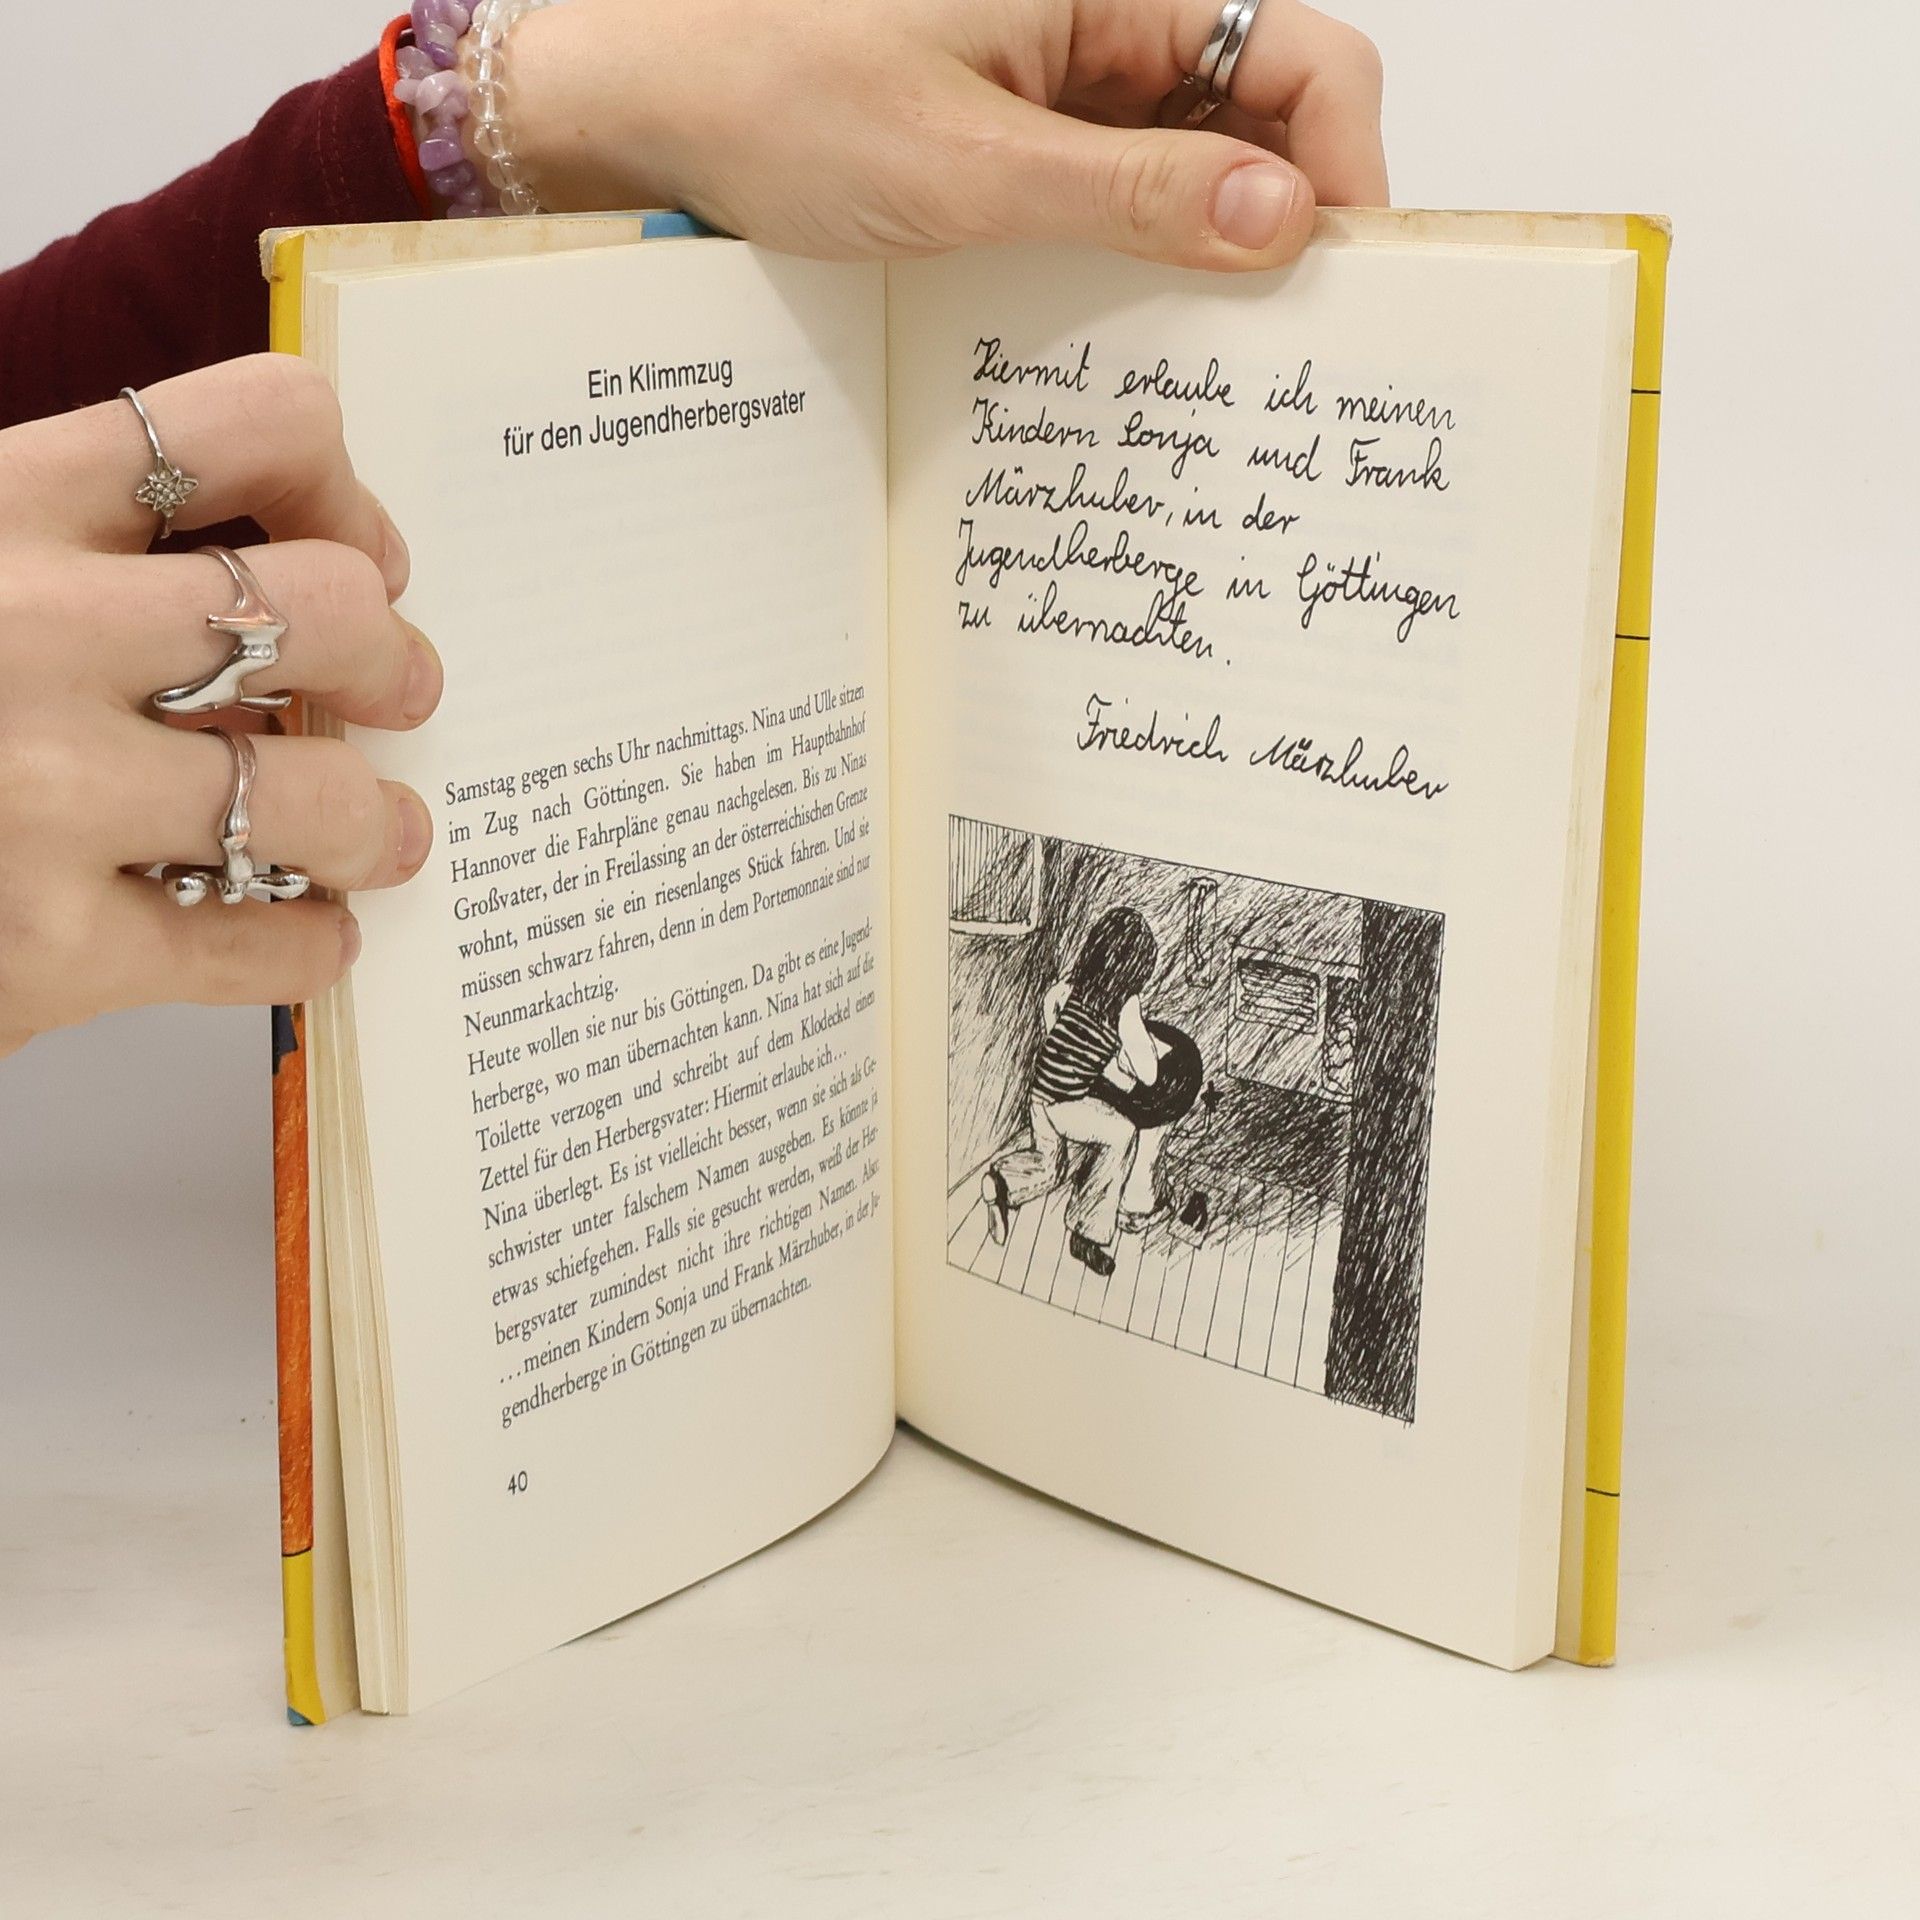 Ein Klimmzug
für den Jugendherbergsvater
Samstag gegen sechs Uhr nachmittags. Nina und Ulle sitzen
im Zug nach Göttingen. Sie haben im Hauptbahnhof
Hannover die Fahrpläne genau nachgelesen. Bis zu Ninas
Großvater, der in Freilassing an der österreichischen Grenze
wohnt, müssen sie ein riesenlanges Stück fahren. Und sie
müssen schwarz fahren, denn in dem Portemonnaie sind nur
Neunmarkachtzig.
Heute wollen sie nur bis Göttingen. Da gibt es eine Jugend-
herberge, wo man übernachten kann. Nina hat sich auf die
Toilette verzogen und schreibt auf dem Klodeckel einen
Zettel für den Herbergsvater: Hiermit erlaube ich...
Nina überlegt. Es ist vielleicht besser, wenn sie sich als Ge-
schwister unter falschem Namen ausgeben. Es könnte ja
etwas schiefgehen. Falls sie gesucht werden, weiß der Her-
bergsvater zumindest nicht ihre richtigen Namen. Also:
...meinen Kindern Sonja und Frank Märzhuber, in der Ju-
gendherberge in Göttingen zu übernachten.
40
Hiermit erlaube ich meinen
Kindern Sonja und Frank
Märzhuber, in der
Jugendherberge in Göttingen
zu übernachten.
Friedrich Märzhuber